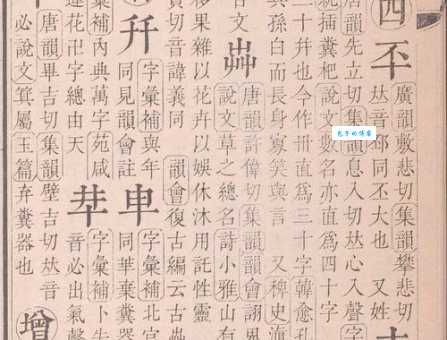 四
㔻
廣韻敷悲切集韻攀悲切
𠀤音邳同丕大也 又姓
唐韻先立切集韻息入切𠀤心入聲字
統插糞杷說文數名亦直爲四十字
二十幷也今作卅直爲三十字韓愈孔
與孫白而長身寡笑與言 又稗史海
古文
芔
唐韻許偉切集韻韻會詡
說文草之總名詩小雅山有
切音諱義同 韻會復古編云古芔
移果雜以花卉以娛休沐用託性靈
字彙補與年
同見韻會註
字彙補北宮
同華棄糞器
彙補內典萬字苑咸
蓮花卍字總由天
字彙補卜
音必出氣聲
唐韻畢吉切集韻壁吉切𠀤音
必說文箕屬玉篇弃糞器也
增
包子的博客